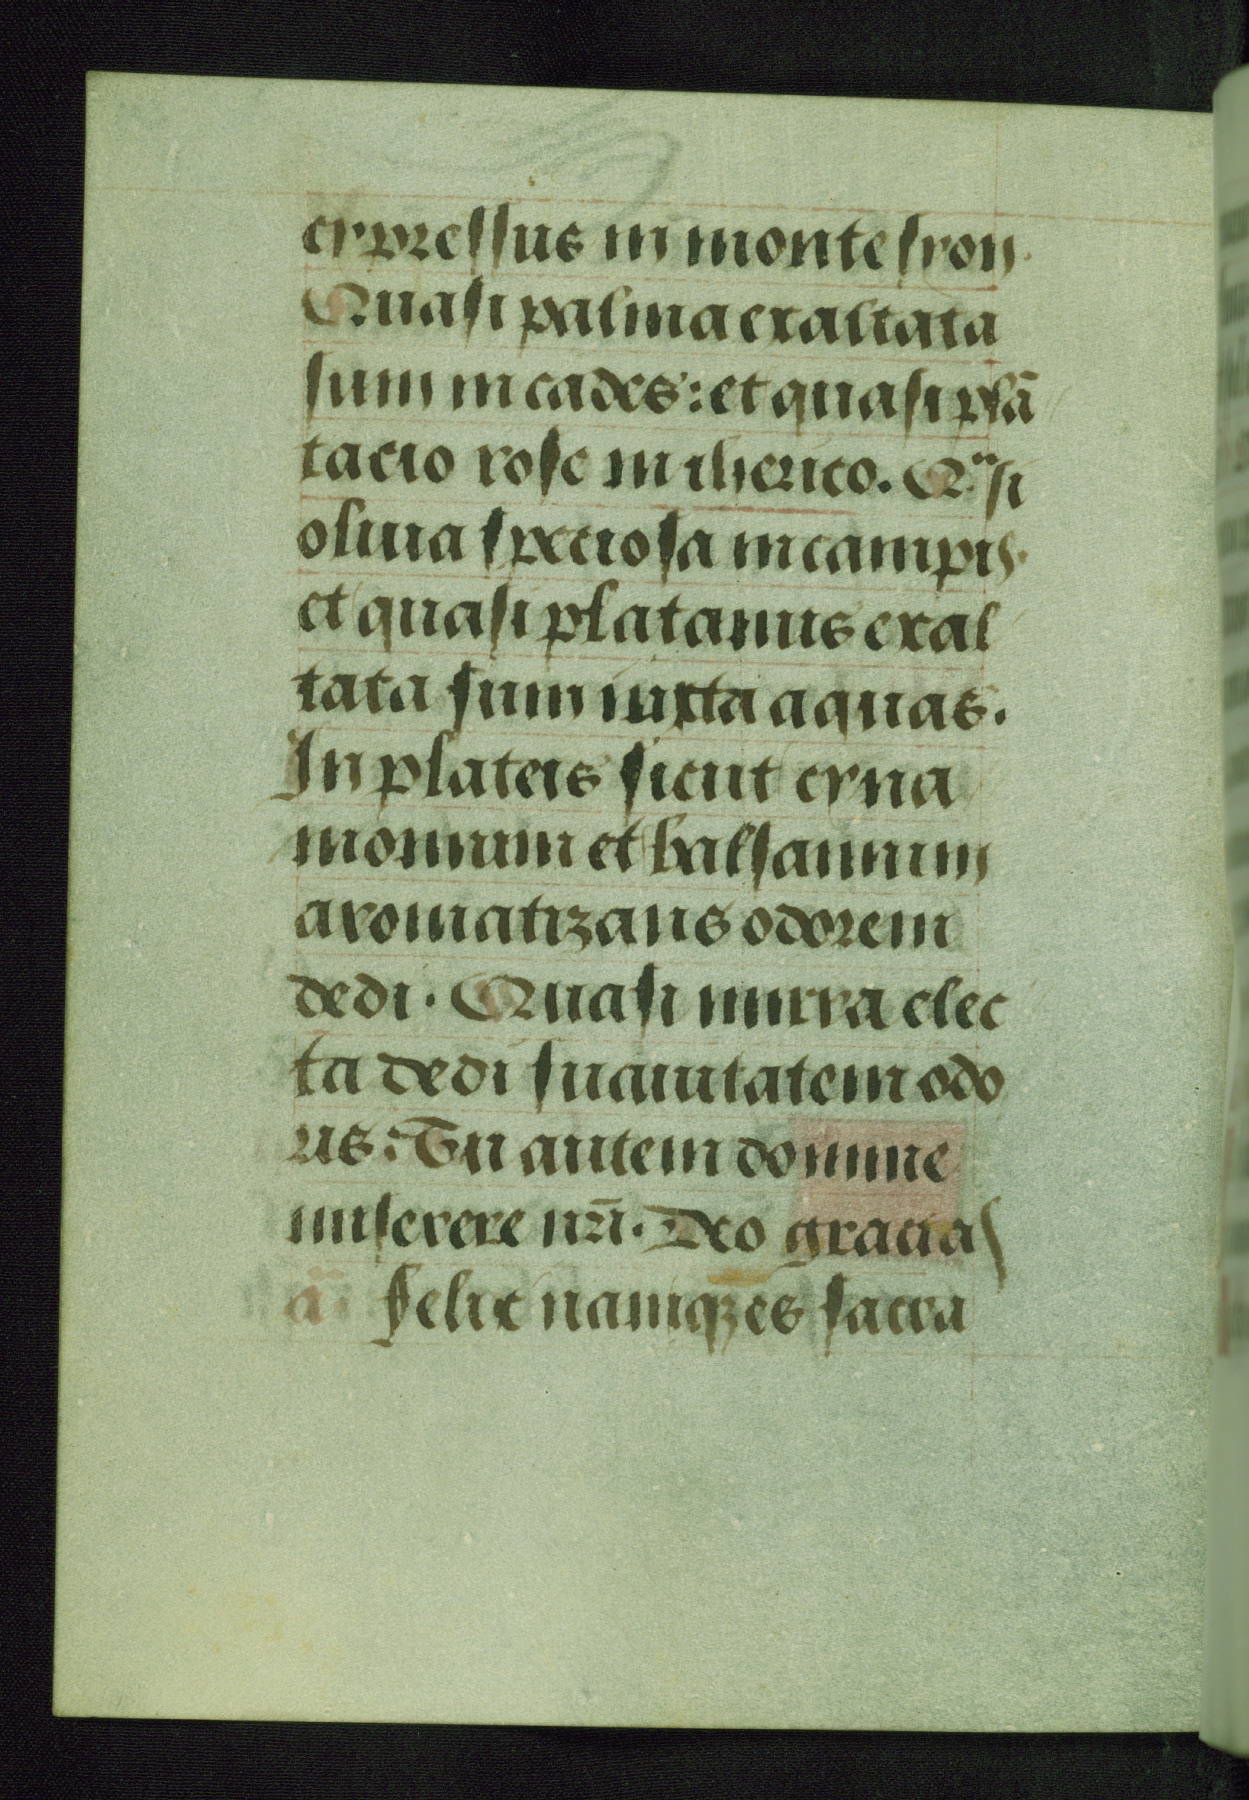 cypressus in monte syon.
Quasi palma exaltata
sum in cades: et quasi plā
tacio rose in iherico. Qᵃsi
oliua speciosa in campis.
et quasi platanus exal
tata sum iuxta aquas.
In plateis sicut cyna
momum et balsamum
aromatizans odorem
dedi. Quasi mirra elec
ta dedi suauitatem odo
ris: Tu autem domine
miserere nr̄i. Deo gracias
Felix namqꝫ es sacra